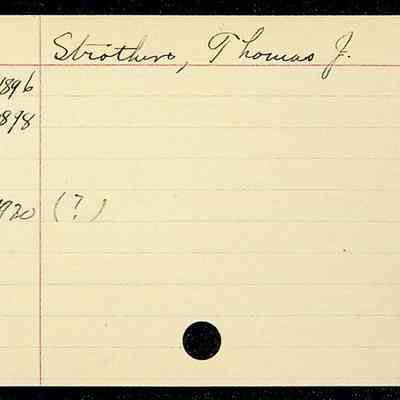 Strothers, Thomas J.
1896
1898
1920 (?)